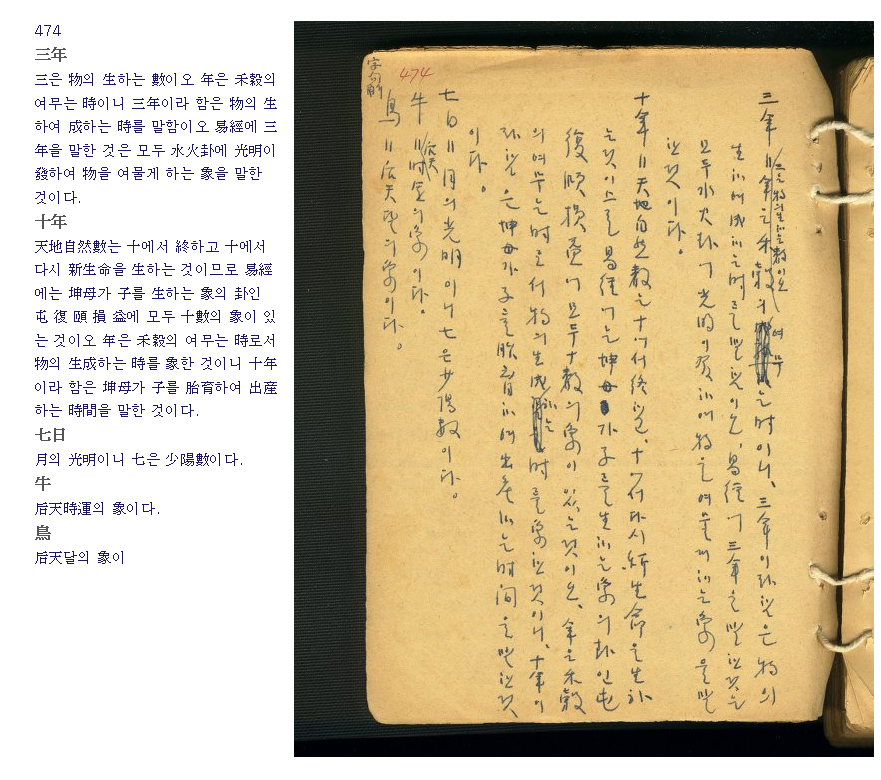 474
三年
三은 物의 生하는 數이오 年은 禾穀의
여무는 時이니 三年이라 함은 物의 生
하여 成하는 時를 말함이오 易經에 三
年을 말한 것은 모두 水火卦에 光明이
發하여 物을 여물게 하는 象을 말한
것이다.
十年
天地自然數는 十에서 終하고 十에서
다시 新生命을 生하는 것이므로 易經
에는 坤母가 子를 生하는 象의 卦인
屯 復 頤 損 益에 모두 十數의 象이 있
는 것이오 年은 禾穀의 여무는 時로서
物의 生成하는 時를 象한 것이니 十年
이라 함은 坤母가 子를 胎育하여 出産
하는 時間을 말한 것이다.
七日
月의 光明이니 七은 少陽數이다.
牛
后天時運의 象이다.
鳥
后天달의 象이
474
三年 〃 三은 物의 生하는 數이오 年은 禾穀의 여무는 時이니, 三年이라 함은 物의
生하여 成하는 時를 말함이오, 易經에 三年을 말한 것은
모두 水火卦에 光明이 發하여 物을 여물게 하는 象을 말
한 것이다.
十年 〃 天地自然數는 十에서 終하고, 十에서 다시 新生命을 生하
는 것이므로 易經에는 坤母가 子를 生하는 象의 卦인 屯
復頤損益에 모두 十數의 象이 있는 것이오, 年은 禾穀
의 여무는 時로서 物의 生成하는 時를 象한 것이니, 十年이
라 함은 坤母가 子를 胎育하여 出産하는 時间을 말한 것
이다.
七日 〃 月의 光明이니 七은 少陽數이다.
牛 〃 后天時運의 象이다.
鳥 〃 后天달의 象이다.